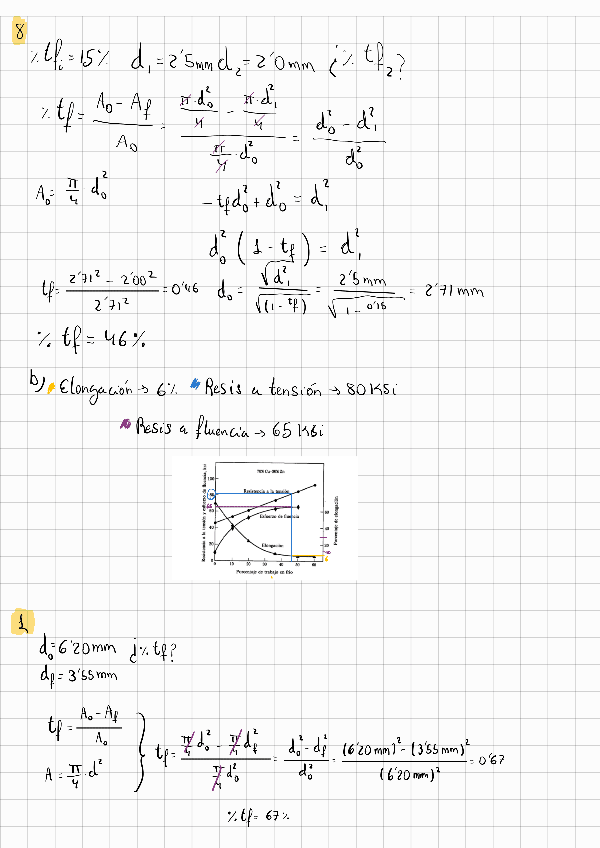 8
% tf₁ = 15% d₁ = 2'5mm d₂ = 2'0mm ¿% tf₂?
% tf = (A₀ - A_f) / A₀ = (π/4·d₀² - π/4·d₁²) / (π/4·d₀²) = (d₀² - d₁²) / d₀²
A₀ = π/4 d₀²
-tf d₀² + d₀² = d₁²
d₀² (1 - tf) = d₁²
tf = (2'71² - 2'00²) / 2'71² = 0'46 d₀ = √d₁² / √(1 - tf) = 2'5mm / √(1 - 0'15) = 2'71 mm
% tf = 46%
b) Elongación → 6% Resis a tensión → 80 KSi
Resis a fluencia → 65 KSi
Resistencia a la tensión
Esfuerzo de fluencia
Elongación
Porcentaje de elongación
0 10 20 30 40 50 60
Porcentaje de trabajo en frío
1
d₀ = 6'20mm ¿% tf?
d_f = 3'55mm
tf = (A₀ - A_f) / A₀
A = π/4·d²
tf = (π/4 d₀² - π/4 d_f²) / (π/4 d₀²) = (d₀² - d_f²) / d₀² = ((6'20mm)² - (3'55mm)²) / (6'20mm)² = 0'67
% tf = 67%